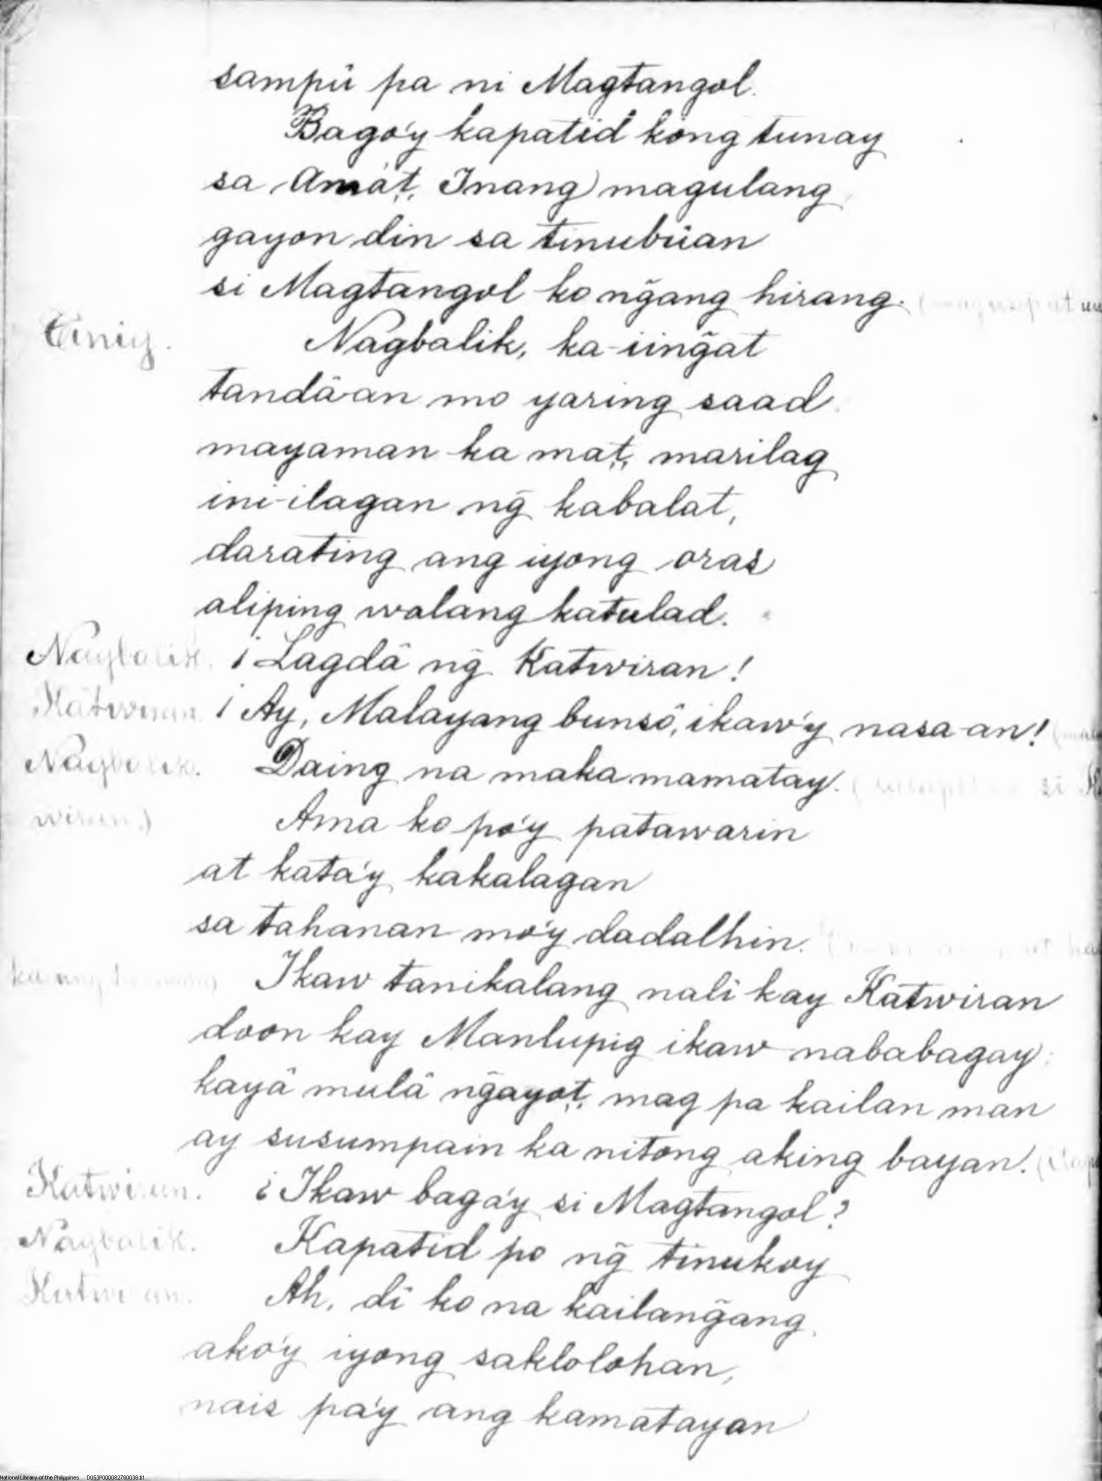 sampû pa ni Magtangol.
Bago'y kapatid kong tunay
sa Ama't, Inang magulang
gayon din sa tinubûan
si Magtangol ko ng̃ang hirang.
Tinig. Nagbalik, ka-iing̃at
tandâ-an mo yaring saad
mayaman ka ma't, marilag
ini-ilagan ng̃ kabalat,
darating ang iyong oras
aliping walang katulad.
Nagbalik. ¡Lagdâ ng̃ Katwiran!
Katwiran. ¡Ay, Malayang bunsô, ikaw'y nasa-an!
Nagbalik. Daing na maka mamatay. ( si
wiran.) Ama ko po'y patawarin
at kata'y kakalagan
sa tahanan mo'y dadalhin.
Ikaw tanikalang nali kay Katwiran
doon kay Manlupig ikaw nababagay:
kayâ mulâ ng̃ayo't, mag pa kailan man
ay susumpain ka nitong aking bayan.
Katwiran. ¿Ikaw baga'y si Magtangol?
Nagbalik. Kapatid po ng̃ tinukoy
Katwiran. Ah, di ko na kailang̃ang
ako'y iyong saklolohan,
nais pa'y ang kamatayan
National Library of the Philippines